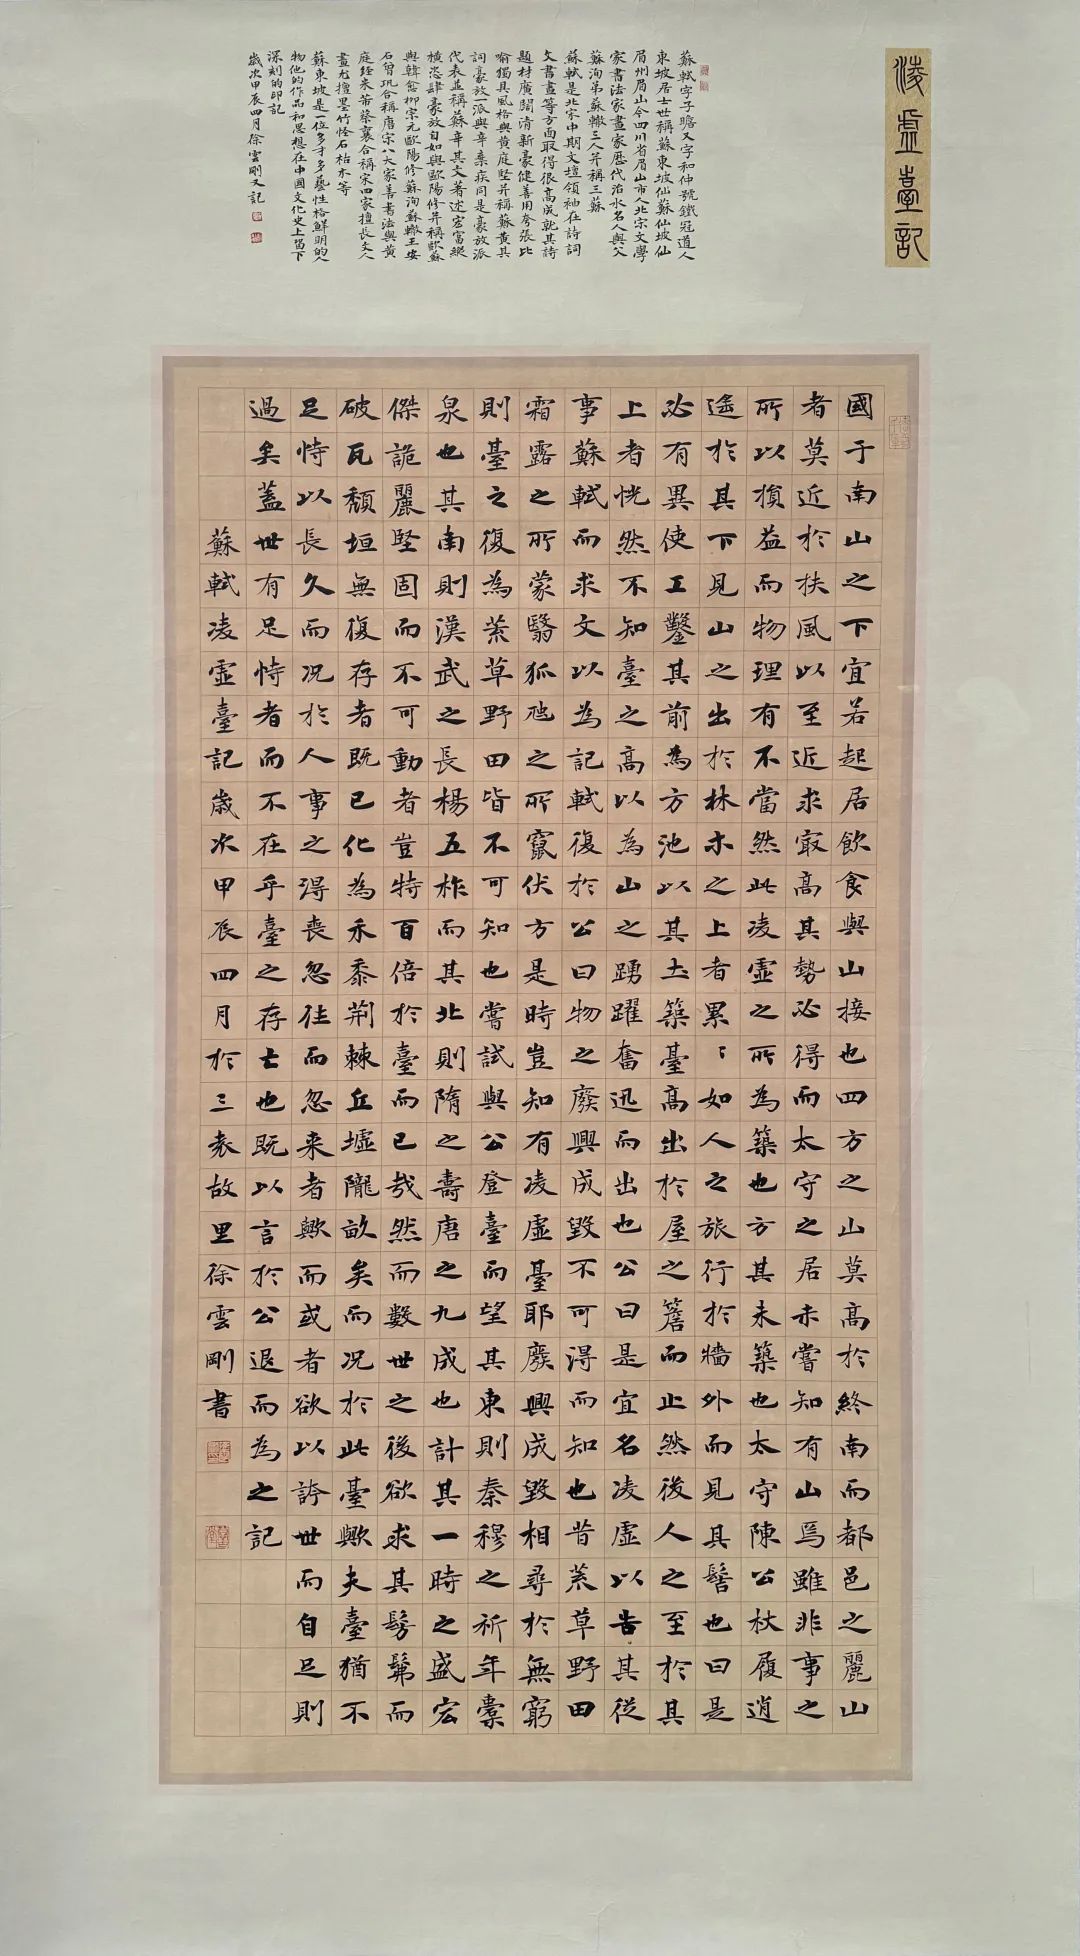 淩虛臺記
蘇軾字子瞻又字和仲號鐵冠道人
東坡居士世稱蘇東坡仙蘇仙坡仙
眉州眉山今四川省眉山市人北宋文學
家書法家畫家歷代治水名人與父
蘇洵弟蘇轍三人并稱三蘇
蘇軾是北宋中期文壇領袖在詩詞
文書畫等方面取得很高成就其詩
題材廣闊清新豪健善用夸張比
喻獨具風格與黃庭堅并稱蘇黃其
詞豪放一派與辛棄疾同是豪放派
代表並稱蘇辛其文著述宏富縱
橫恣肆豪放自如與歐陽修并稱歐蘇
與韓愈柳宗元歐陽修蘇洵蘇轍王安
石曾巩合稱唐宋八大家善書法與黃
庭堅米芾蔡襄合稱宋四家擅長文人
畫尤擅墨竹怪石枯木等
蘇東坡是一位多才多藝性格鮮明的人
物他的作品和思想在中國文化史上留下
深刻的印記
歲次甲辰四月徐雲剛又記
國于南山之下宜若起居飲食與山接也四方之山莫高於終南而都邑之麗山
者莫近於扶風以至近求最高其勢必得而太守之居未嘗知有山焉雖非事之
所以損益而物理有不當然此凌虛之所為築也方其未築也太守陳公杖履逍
遙於其下見山之出於林木之上者累〻如人之旅行於牆外而見其髻也曰是
必有異使工鑿其前為方池以其土築臺高出於屋之簷而止然後人之至於其
上者恍然不知臺之高以為山之踴躍奮迅而出也公曰是宜名凌虛以告其從
事蘇軾而求文以為記軾復於公曰物之廢興成毀不可得而知也昔荒草野田
霜露之所蒙翳狐虺之所竄伏方是時豈知有凌虛臺耶廢興成毀相尋於無窮
則臺之復為荒草野田皆不可知也嘗試與公登臺而望其東則秦穆之祈年橐
泉也其南則漢武之長楊五柞而其北則隋之壽唐之九成也計其一時之盛宏
傑詭麗堅固而不可動者豈特百倍於臺而已哉然而數世之後欲求其髣髴而
破瓦頹垣無復存者既已化為禾黍荊棘丘墟隴畝矣而況於此臺歟夫臺猶不
足恃以長久而況於人事之得喪忽往而忽来者歟而或者欲以誇世而自足則
過矣蓋世有足恃者而不在乎臺之存亡也既以言於公退而為之記
蘇軾凌虛臺記歲次甲辰四月於三袁故里徐雲剛書